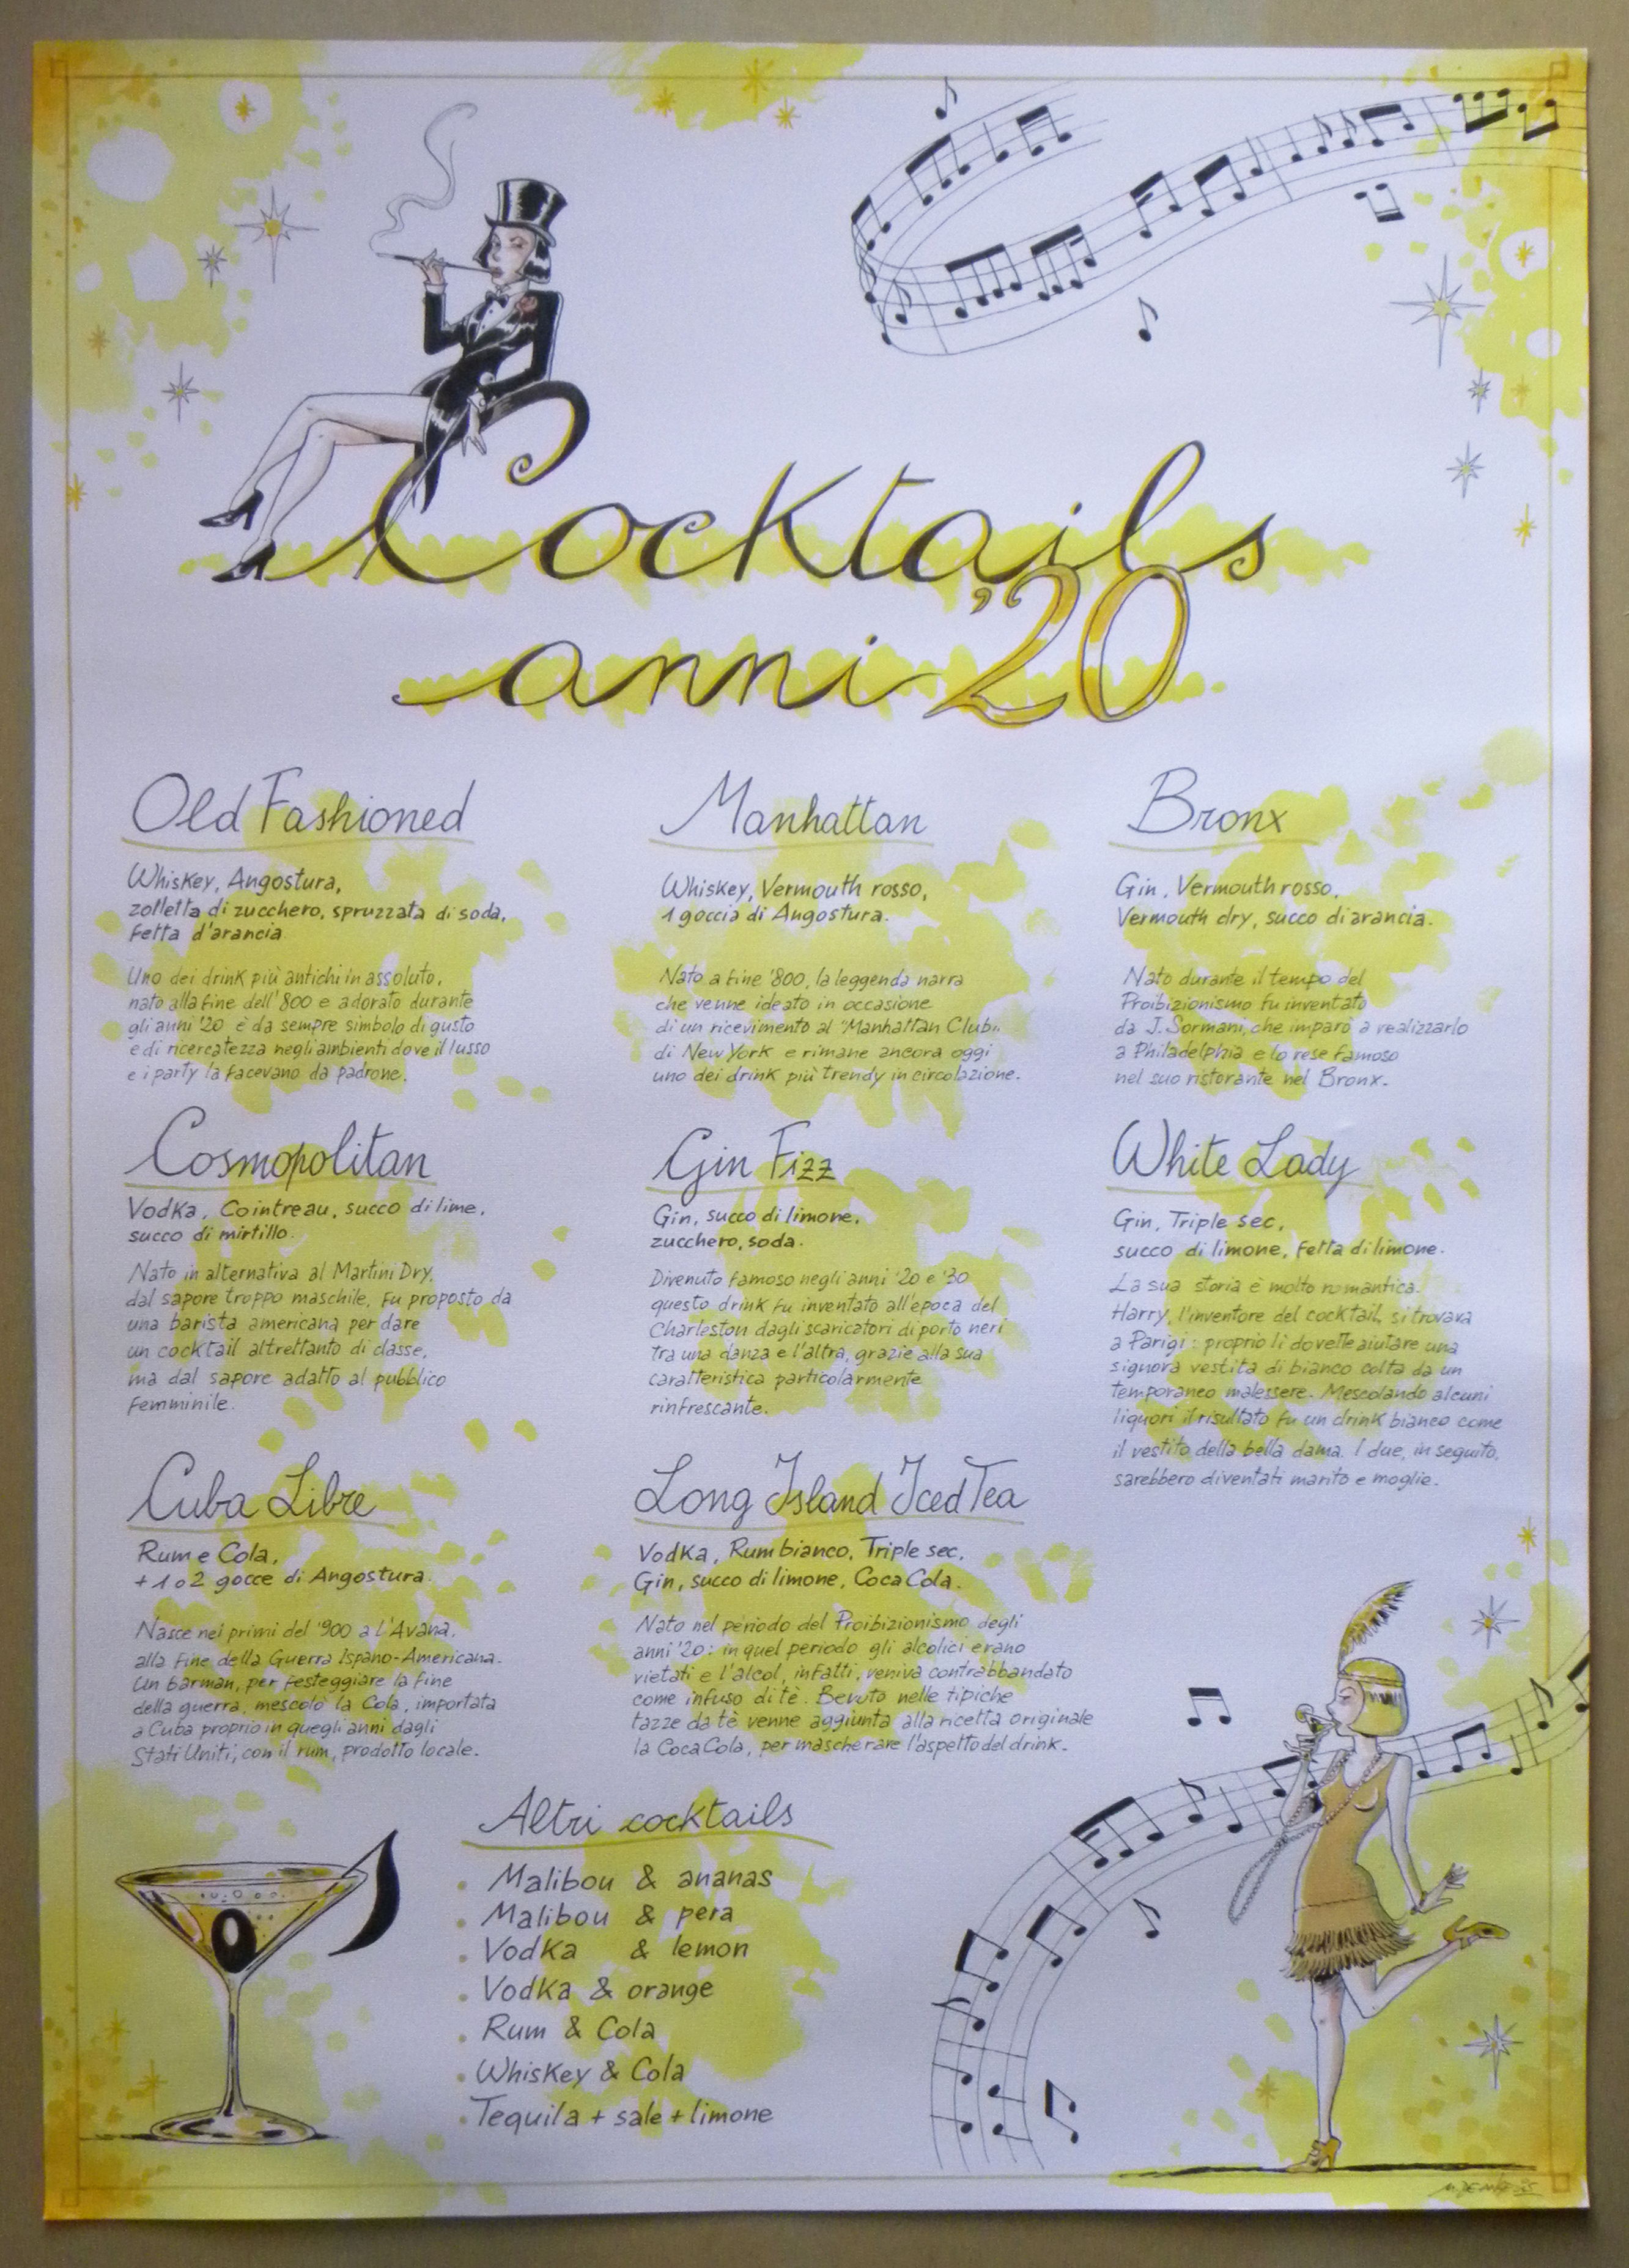 Cocktails
anni '20
Old Fashioned
Whiskey, Angostura,
zolletta di zucchero, spruzzata di soda,
fetta d'arancia.
Uno dei drink più antichi in assoluto,
nato alla fine dell'800 e adorato durante
gli anni '20, è da sempre simbolo di gusto
e di ricercatezza negli ambienti dove il lusso
e i party la facevano da padrone.
Manhattan
Whiskey, Vermouth rosso,
1 goccia di Angostura.
Nato a fine '800, la leggenda narra
che venne ideato in occasione
di un ricevimento al "Manhattan Club"
di New York e rimane ancora oggi
uno dei drink più trendy in circolazione.
Bronx
Gin, Vermouth rosso,
Vermouth dry, succo di arancia.
Nato durante il tempo del
Proibizionismo fu inventato
da J. Sormani, che imparò a realizzarlo
a Philadelphia e lo rese famoso
nel suo ristorante nel Bronx.
Cosmopolitan
Vodka, Cointreau, succo di lime,
succo di mirtillo.
Nato in alternativa al Martini Dry,
dal sapore troppo maschile, fu proposto da
una barista americana per dare
un cocktail altrettanto di classe,
ma dal sapore adatto al pubblico
femminile.
Gin Fizz
Gin, succo di limone,
zucchero, soda.
Divenuto famoso negli anni '20 e '30
questo drink fu inventato all'epoca del
Charleston dagli scaricatori di porto neri
tra una danza e l'altra, grazie alla sua
caratteristica particolarmente
rinfrescante.
White Lady
Gin, Triple sec,
succo di limone, fetta di limone.
La sua storia è molto romantica.
Harry, l'inventore del cocktail, si trovava
a Parigi: proprio lì dovette aiutare una
signora vestita di bianco colta da un
temporaneo malessere. Mescolando alcuni
liquori il risultato fu un drink bianco come
il vestito della bella dama. I due, in seguito,
sarebbero diventati marito e moglie.
Cuba Libre
Rum e Cola,
+ 1 o 2 gocce di Angostura.
Nasce nei primi del '900 a L'Avana,
alla fine della Guerra Ispano-Americana.
Un barman, per festeggiare la fine
della guerra, mescolò la Cola, importata
a Cuba proprio in quegli anni dagli
Stati Uniti, con il rum, prodotto locale.
Long Island Iced Tea
Vodka, Rum bianco, Triple sec,
Gin, succo di limone, Coca Cola.
Nato nel periodo del Proibizionismo degli
anni '20: in quel periodo gli alcolici erano
vietati e l'alcol, infatti, veniva contrabbandato
come infuso di tè. Bevuto nelle tipiche
tazze da tè venne aggiunta alla ricetta originale
la Coca Cola, per mascherare l'aspetto del drink.
Altri cocktails
• Malibou & ananas
• Malibou & pera
• Vodka & lemon
• Vodka & orange
• Rum & Cola
• Whiskey & Cola
• Tequila + sale + limone